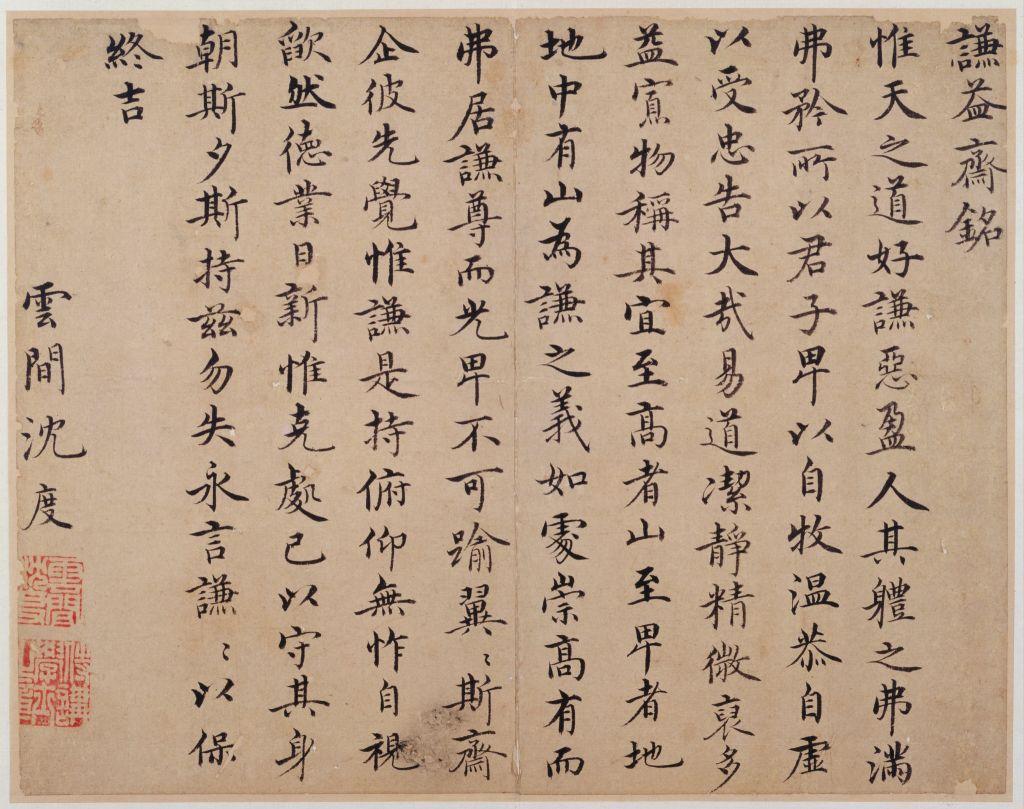 謙益齋銘
惟天之道好謙惡盈人其軆之弗滿
弗矜所以君子卑以自牧温恭自虛
以受忠告大哉易道潔靜精微裒多
益寡物稱其宜至高者山至卑者地
地中有山為謙之義如䖏崇高有而
弗居謙尊而光卑不可踰翼〻斯齋
企彼先覺惟謙是持俯仰無怍自視
歉然德業日新惟克處己以守其身
朝斯夕斯持茲勿失永言謙〻以保
終吉
雲間沈度